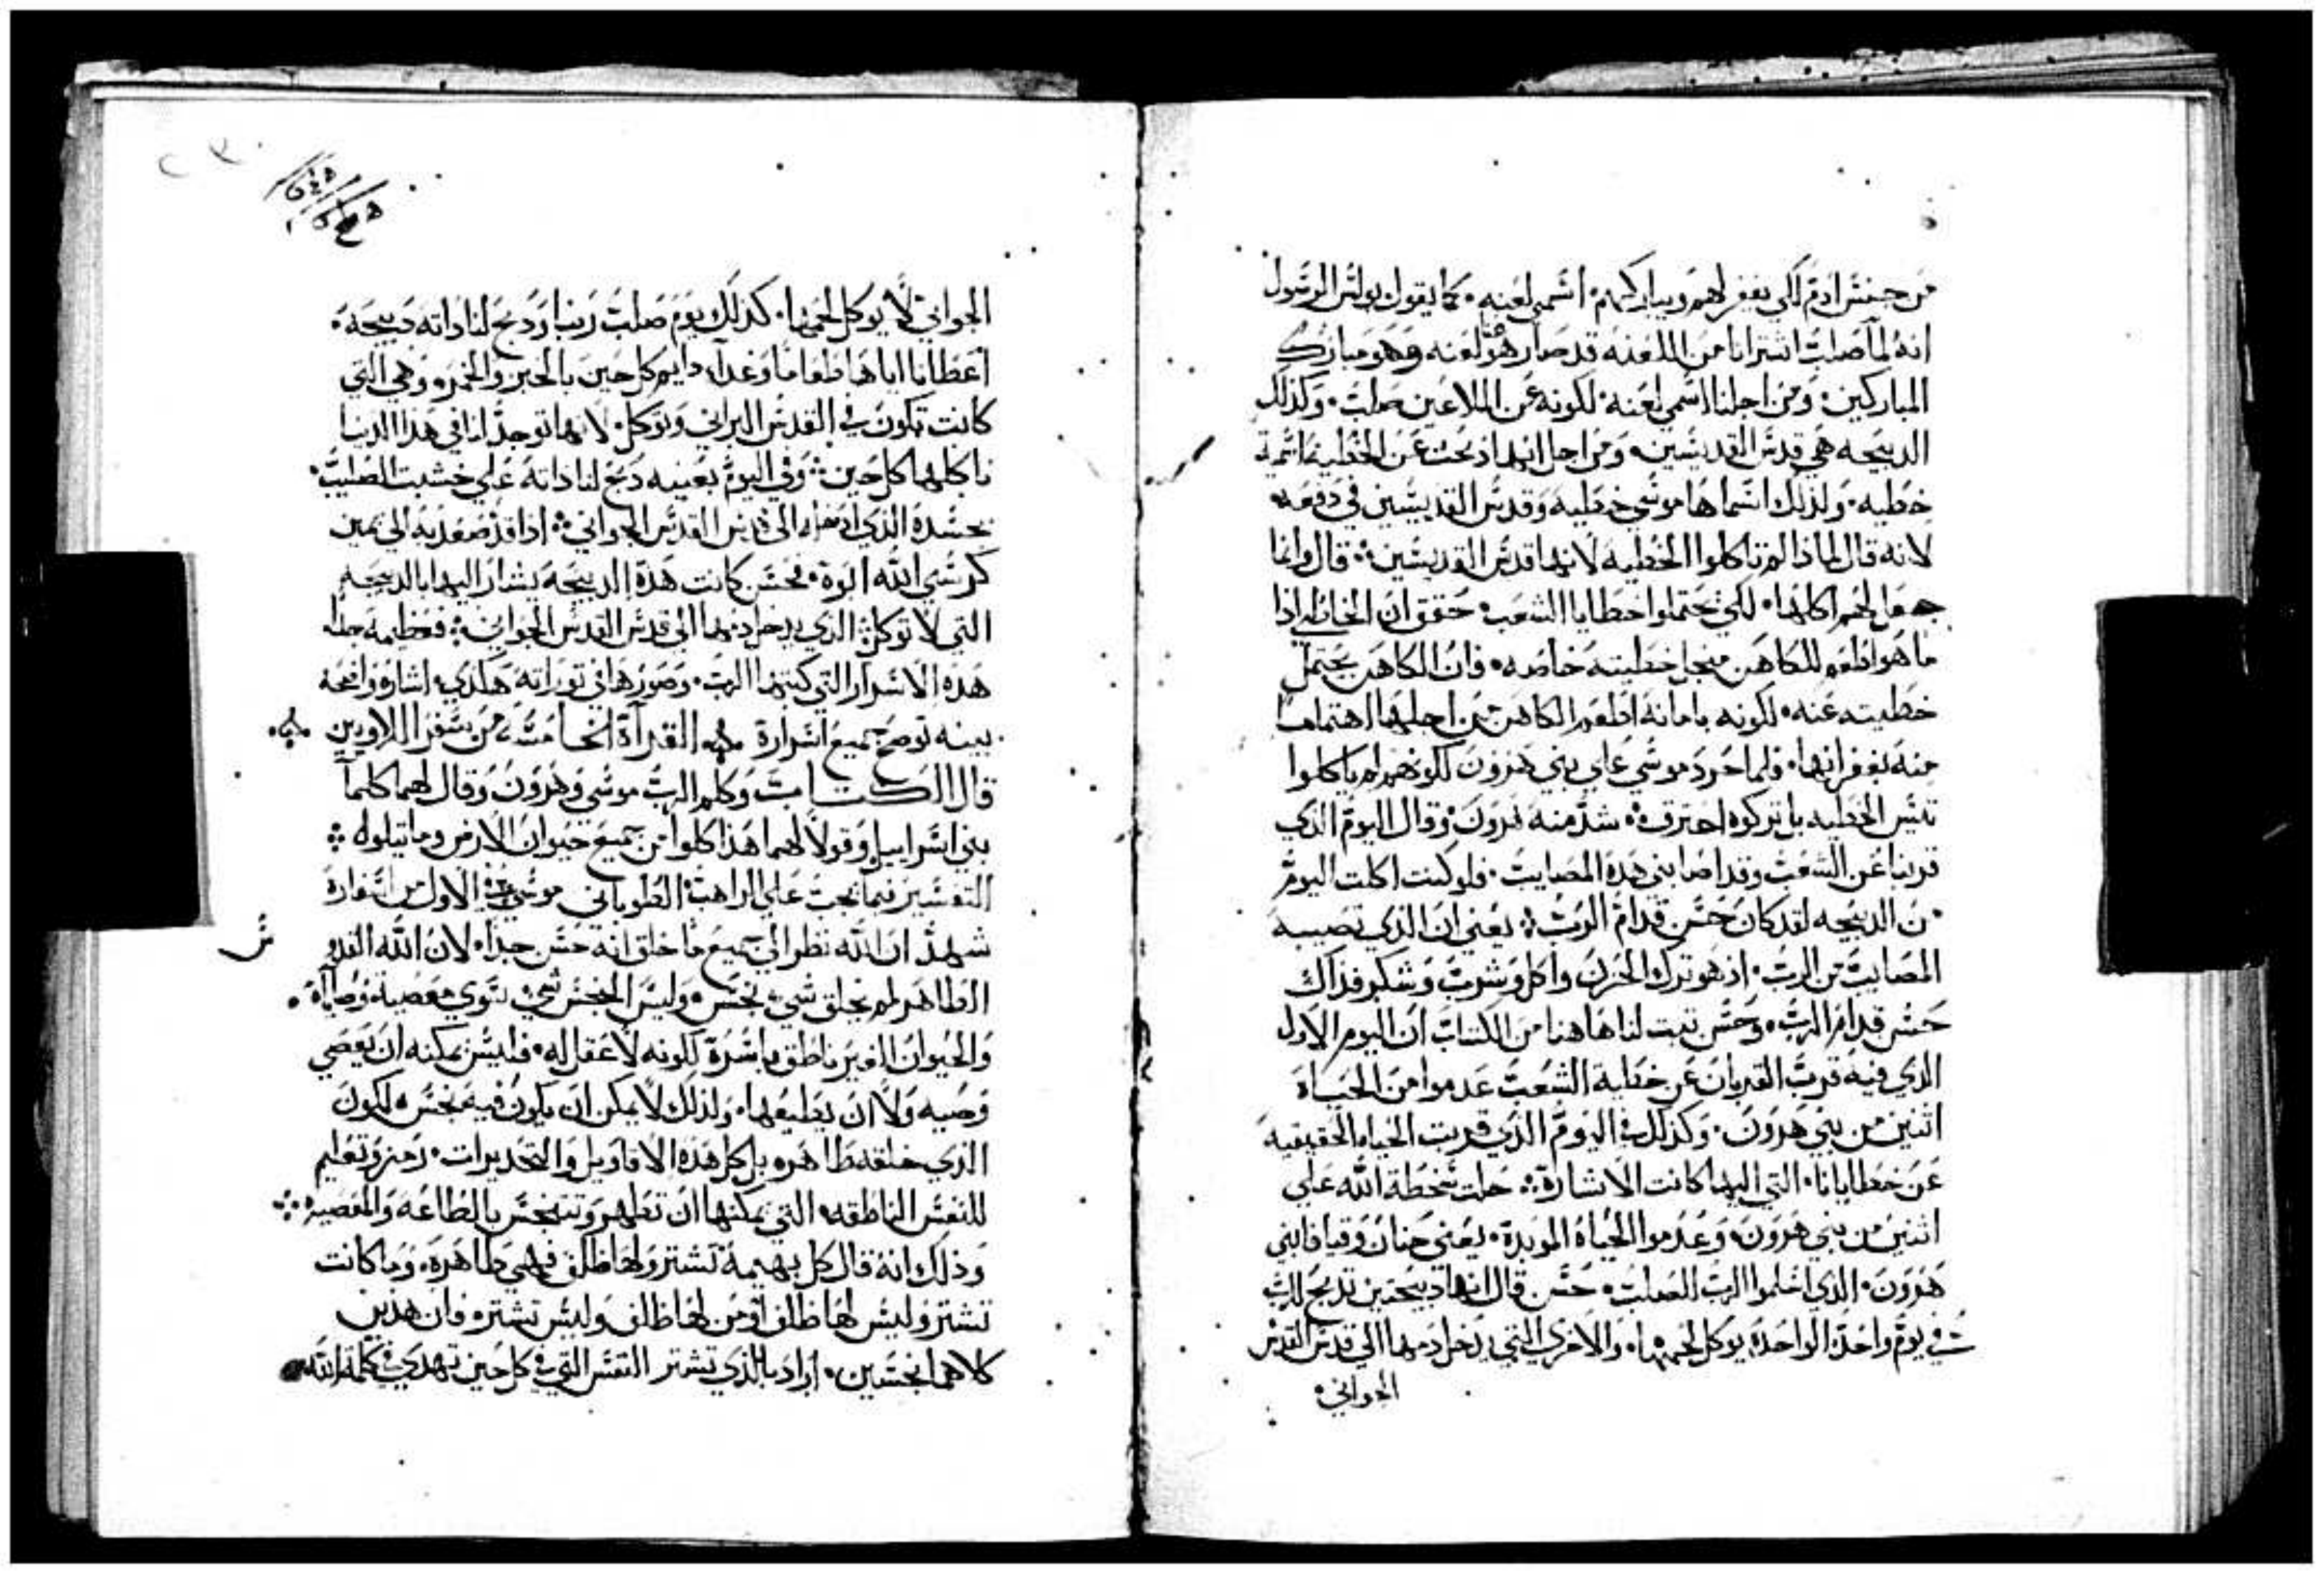 من جنس ادم لكي يغفر لهم ويباركهم اسمي لعنه كما يقول بولس الرسول
انه لما صلب اشترانا من اللعنه قد صار هو لعنه وهو مبارك
المباركين ومن اجلنا اسمي لعنه لكونه عن الملاعين صلب وكذلك
الدبيحه هي قدس القديسين ومن اجل انها دبحت عن الخطيه اسمية
خطيه ولذلك اسماها موسي خطيه وقدس القديسين في دفعه
لانه قال لماذا لم تاكلوا الخطيه لانها قدس القديسين قال وانما
جعل لكم اكلها لكي تحتملوا خطايا الشعب حقق ان الخاطي اذا
ما هو اطعم للكاهن منجل خطيته خاصه فان الكاهن يحتمل
خطيته عنه لكونه بامانه اطعم الكاهن من اجلها اهتماما
منه بغفرانها ولما حرد موسي علي بني هرون لكونهم لم ياكلوا
تيس الخطيه بل تركوه احترق شد منه هرون وقال اليوم الذي
قربنا عن الشعب وقد اصابني هذه المصايب فلو كنت اكلت اليوم
من الدبيحه لقد كان حسن قدام الرب يعني ان الذي تصيبه
المصايب من الرب اذ هو ترك الحزن واكل وشرب وشكر فذاك
حسن قدام الرب وحسن تبت لنا هاهنا من الكتاب ان اليوم الاول
الذي فيه قرب القربان عن خطاية الشعب عدموا من الحياة
اثنين من بني هرون وكذلك في اليوم الذي قربت الحياه الحقيقيه
عن خطايانا التي اليها كانت الاشارة حلت سخطة الله علي
اثنين من بني هرون وعدموا الحياة الموبدة يعني حنان وقيافا بني
هرون الذي اسلموا الرب للصلب حسن قال انها دبيحتين تدبح للرب
في يوم واحد الواحدة يوكل لحمها والاخري التي يدخل دمها الي قدس القدس
الجواني
الجواني لا يوكل لحمها كذلك يوم صلب ربنا ودبح لنا داته دبيحه
اعطانا اياها طعاما وغداء دايم كل حين بالخبز والخمر وهي التي
كانت تكون في القدس البراني وتوكل لانها توجد لنا في هذا الدنيا
ناكلها كل حين وفي اليوم بعينه دبح لنا داته علي خشبت الصليب
بجسده الذي الى قدس القدس الجواني اذا قد صعد به الي يمين
كرسي الله ابوة فحسن كانت هذة الدبيحة يشار اليها بالدبيحه
التي لا توكل الذي يدخل دمها الى قدس القدس الجواني فعظيمة جدا
هذه الاسرار التي كتبها الرب وصورها في توراته هكذي اشارة واضحة
بينه توضح جميع اسرارة القراة الخامسة من سفر اللاويين
قال الكتاب وكلم الرب موسي وهرون وقال لهما كلما
بني اسراييل وقولا لهما هذا كلوا من جميع حيوان الارض وما يتلوه
التفسير فيما يجب علي الراهب الطوباني موسي في الاول من اسفارة
شهد ان الله نظر الي جميع ما خلق انه حسن جدا لان الله القدوس
الطاهر لم يخلق شي نجس وليس النجس شي سوي معصية وصاياه
والحيوان الغير ناطق باسرة لكونه لا عقل له فليس يمكنه ان يعصي
وصيه ولا ان يطيعها ولذلك لا يمكن ان يكون فيه نجس لكون
الذي خلقه طاهره بل كل هذه الاقاويل والتحديرات رمز وتعليم
للنفس الناطقه التي يمكنها ان تطهر وتتنجس بالطاعة والمعصية
وذلك انه قال كل بهيمة تشتر ولها ظلف فهي طاهره وما كانت
تشتر وليس لها ظلف او من لها ظلف وليس تشتر فان هذين
كلاهما نجسين اراد بالذي تشتر النفس التي في كل حين تهدي في كلمة الله